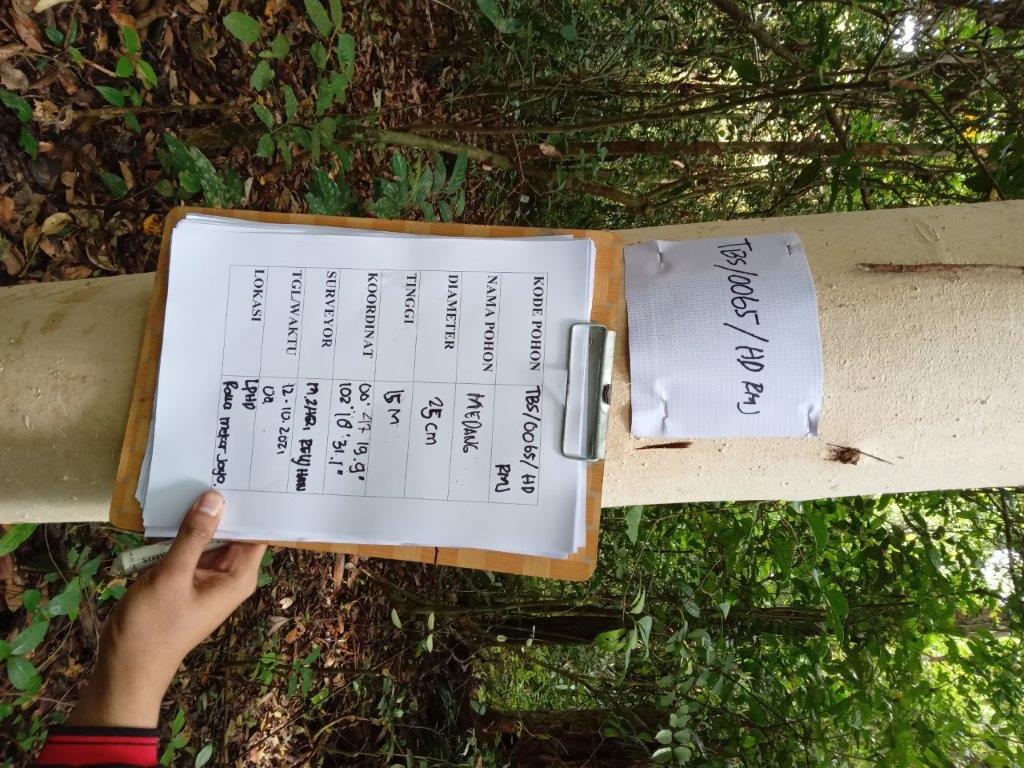 TBS/0065/HD RMJ
KODE POHON TBS/0065/HD RMJ
NAMA POHON MEDANG
DIAMETER 25 cm
TINGGI 15 M
KOORDINAT 00° 47' 19.9"
102° 18' 31.1"
SURVEYOR
TGL/WAKTU 12.10.2021
LOKASI LPHD
Rawa mekar jaya.